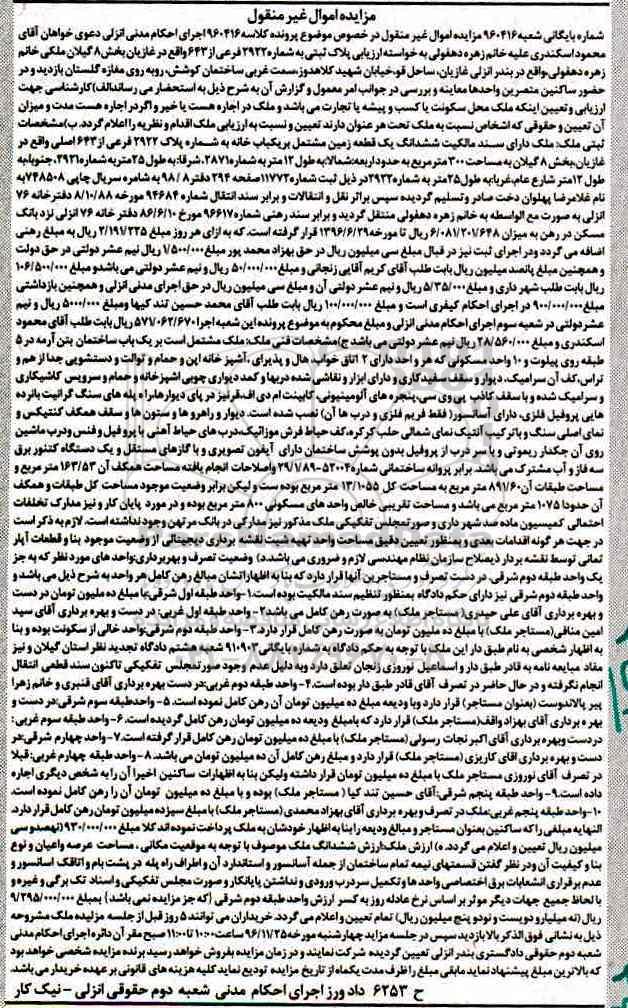 مزایده اموال غیر منقول
شماره بایگانی شعبه ۹۶۰۴۱۶ مزایده اموال غیر منقول در خصوص موضوع پرونده کلاسه ۹۶۰۴۱۶ اجرای احکام مدنی انزلی دعوی خواهان آقای
محمود اسکندری علیه خانم زهره دهقولی به خواسته ارزیابی پلاک ثبتی به شماره ۲۹۲۲ فرعی از ۶۴۳ واقع در غازیان بخش ۸ گیلان ملکی خانم
زهره دهقولی، واقع در بندر انزلی غازیان، ساحل قو، خیابان شهید کلاهدوز، سمت غربی ساختمان کوشش، روبه روی مغازه گلستان بازدید و در
حضور ساکنین متصرین واحدها معاینه و بررسی در جوانب امر معمول و گزارش آن به شرح ذیل به استحضار می رساند الف) کارشناسی جهت
ارزیابی و تعیین اینکه ملک محل سکونت یا کسب و پیشه یا تجارت می باشد و ملک در اجاره هست یا خیر و اگر در اجاره هست مدت و میزان
آن تعیین و حقوقی که اشخاص نسبت به ملک تحت هر عنوان دارند تعیین و نسبت به ارزیابی ملک اقدام و نظریه را اعلام گردد. ب) مشخصات
ثبتی ملک: ملک دارای سند مالکیت ششدانگ یک قطعه زمین مشتمل بر یکباب خانه به شماره پلاک ۲۹۲۲ فرعی از ۶۴۳ اصلی واقع در
غازیان، بخش ۸ گیلان به مساحت ۳۰۰ مترمربع به حدود اربعه: شمالا: به طول ۱۲ متر به شماره ۲۸۷۱، شرقا: به طول ۲۵ متر به شماره ۲۹۲۱، جنوبا: به
طول ۱۲ متر شارع عام، غربا: به طول ۲۵ متر به شماره ۲۹۲۳ در ذیل ثبت شماره ۱۱۷۷۲ صفحه ۲۹۴ دفتر ۹۸/۸ به شماره سریال چاپی ۷۴۸۵۰۸ به
نام غلامرضا پهلوان دخت صادر و تسلیم گردیده سپس براثر نقل و انتقالات و برابر سند انتقال شماره ۹۴۶۸۴ مورخه ۸/۱۰/۸۸ دفترخانه ۷۶
انزلی به صورت مع الواسطه به خانم زهره دهقولی منتقل گردید و برابر سند رهنی شماره ۹۶۶۱۷ مورخ ۸۶/۶/۱۰ دفتر خانه ۷۶ انزلی نزد بانک
مسکن در رهن به میزان ۶/۰۸۱/۲۰۱/۶۴۸ ریال تا مورخه ۱۳۹۶/۶/۲۹ قرار گرفته است. که به ازای هر روز مبلغ ۲/۱۹۱/۲۲۵ ریال به مبلغ رهنی
اضافه می گردد و در اجرای ثبت نیز در قبال مبلغ سی میلیون ریال در حق بهزاد محمد پور مبلغ ۱/۵۰۰/۰۰۰ ریال نیم عشر دولتی در حق دولت
و همچنین مبلغ پانصد میلیون ریال بابت طلب آقای کریم آقایی زنجانی و مبلغ ۵۰/۰۰۰/۰۰۰ ریال و نیم عشر دولتی می باشد و مبلغ ۱۰۶/۵۰۰/۰۰۰
ریال بابت طلب شهر داری و مبلغ ۵/۳۵۰/۰۰۰ ریال و نیم عشر دولتی آن و مبلغ سی میلیون ریال در حق اجرای مدنی انزلی و همچنین بازداشتی
مبلغ ۹۰۰/۰۰۰/۰۰۰ در اجرای احکام کیفری است و مبلغ ۱۰۰/۰۰۰/۰۰۰ ریال بابت طلب آقای محمد حسین تند کیها و مبلغ ۵۰۰۰/۰۰۰ ریال و نیم
عشر دولتی در شعبه سوم اجرای احکام مدنی انزلی و مبلغ محکوم به موضوع پرونده این شعبه اجرا ۵۷۱/۰۶۲/۶۷۰ ریال بابت طلب آقای محمود
اسکندری و مبلغ ۲۸/۵۶۰/۰۰۰ ریال نیم عشر دولتی می باشد ج) مشخصات فنی ملک: ملک مشتمل است بر یک باب ساختمان بتن آرمه در ۵
طبقه روی پیلوت و ۱۰ واحد مسکونی که هر واحد دارای ۲ اتاق خواب، هال و پذیرای، آشپز خانه اپن و حمام و توالت و دستشویی جدا از هم و
تراس، کف آن سرامیک، دیوار و سقف سفیدکاری و دارای ابزار و نقاشی شده درب‌ها و کمد دیواری چوبی اشپزخانه و حمام و سرویس کاشیکاری
و سرامیک شده و با سقف کاذب پی وی سی، پنجره های آلومینیونی، کابینت ام دی اف، قرنیز در پای دیوارها، راه پله های سنگ گرانیت بانرده
هایی پروفیل فلزی، دارای آسانسور( فقط فریم فلزی و درب ها آن) نصب شده است، دیوار و راهرو ها و ستون ها و سقف همکف کنتیکس و
نمای اصلی سنگ و باترکیب آنتیک نمای شمالی حلب کرکره، کف حیاط فرش موزائیک، درب های حیاط آهنی با پروفیل و فنس و درب ماشین
روی آن جکدار ریموتی و یا سر درب از پروفیل بدون پوشش ساختمان دارای آیفون تصویری و با گازهای مستقل و یک دستگاه کنتور برق
سه فاز و آب مشترک می باشد. برابر پروانه ساختمانی شماره ۵۲۰۰۴-۲۹/۱/۸۹ واصلاحات انجام یافته مساحت همکف آن ۱۶۳/۵۳ متر مربع و
مساحت طبقات آن ۸۹۱/۶۰ متر مربع به مساحت کل ۱۰۵۵/۱۳ متر مربع بوده ست و لیکن برابر وضعیت موجود مساحت کل طبقات و همکف
آن حدودا ۱۰۷۵ متر مربع می باشد و مساحت تقریبی خالص واحد های مسکونی ۸۰۰ متر مربع بوده و در مورد پایان کار و نیز مدارک تخلفات
احتمالی کمیسیون ماده صد شهر داری و صورتمجلس تفکیکی ملک مذکور نیز مدارکی در بانک مرتهن وجود نداشته است. لازم به ذکر است
در جهت هر گونه اقدامات بعدی و بمنظور تعیین دقیق مساحت واحد تهیه شیت نقشه برداری دیجیتالی از وضعیت موجود بنا و قطعات آپار
تمانی توسط نقشه بردار ذیصلاح سازمان نظام مهندسی لازم و ضروری می باشد، د) وضعیت تصرف و بهربرداری: واحد های مورد نظر که به جز
یک واحد طبقه دوم شرقی، در دست تصرف و مستاجرین آنها قرار دارد که بنا به اظهاراتشان مبالغ رهن کامل هر واحد به شرح ذیل می باشد و
واحد طبقه دوم شرقی نیز دارای حکم دادگاه بمنظور تنظیم سند مالکیت بوده است.۱- واحد طبقه اول شرقی: با مبلغ ده ملیون تومان در دست
و بهره برداری آقای علی حیدری(مستاجر ملک) به صورت رهن کامل می باشد ۲- واحد طبقه اول غربی: در دست و بهره برداری آقای سید
امین منافی(مستاجر ملک) با مبلغ ده ملیون تومان به صورت رهن کامل قرار دارد.۳- واحد طبقه دوم شرقی: واحد خالی از سکونت بوده و بنا
به اظهار شخصی به نام طبق دار این ملک با توجه به حکم دادگاه به شماره بایگانی ۹۱۰۹۰۳ شعبه هشتم دادگاه تجدید نظر استان گیلان و نیز
مفاد مبایعه نامه به قادر طبق دار و اسماعیل نوروزی زنجان تعلق دارد وبه دلیل عدم وجود صورتمجلس تفکیکی تاکنون سند قطعی انتقال
انجام نگرفته و در حال حاضر در تصرف آقای قادر طبق دار بوده است.۴- واحد طبقه دوم غربی: در دست بهره برداری آقای قنبری و خانم زهرا
پیر پالاندوست (بعنوان مستاجر) قرار دارد وبا ودیعه مبلغ ده میلیون تومان آن رهن کامل نموده است. ۵- واحد طبقه سوم شرقی: در دست و
بهره برداری آقای بهزاد واقف(مستاجر ملک) قرار دارد که بامبلغ ودیعه ده میلیون تومان رهن کامل گردیده است. ۶- واحد طبقه سوم غربی:
در دست و بهره برداری آقای اکبر نجات رسولی (مستاجر ملک) با مبلغ ده میلیون تومان رهن کامل قرار گرفته است.۷- واحد چهارم شرقی: در
دست و بهره برداری اقای کاریزی (مستاجر ملک) قرار دارد و مبلغ رهن کامل آن ده میلیون تومان می باشد. ۸- واحد طبقه چهارم غربی: قبلا
در تصرف آقای نوروزی مستاجر ملک با مبلغ ده میلیون تومان قرار داشته ولیکن بنا به اظهارات ساکنین اخیرا آن را به شخص دیگری اجاره
داده است.۹- واحد طبقه پنجم شرقی: آقای حسین تند کیا ( مستاجر ملک) بوده و با مبلغ ده میلیون تومان آن را رهن کامل نموده است.
۱۰- واحد طبقه پنجم غربی: ملک در تصرف و بهره برداری آقای بهزاد محمدی (مستاجر ملک) با مبلغ سیزده میلیون تومان رهن کامل قرار دارد.
النهایه مبلغی را که ساکنین بعنوان مستاجر و مبالغ ودیعه را بنا به اظهار خودشان به ملک پرداخت نموده اند کلا مبلغ ۹۳۰/۰۰۰/۰۰۰ (نهصد و سی
میلیون ریال تعیین و اعلام می گردد. ه) ارزش ملک: ارزش ششدانگ ملک موصوف با توجه به موقعیت مکانی ، مساحت عرصه واعیان و نوع
بنا و کیفیت آن و در نظر گفتن قسمتهای نیمه تمام ساختمان از جمله آسانسور و استاندارد آن و اطراف راه پله در پشت بام و اتاقک اسانسور و
عدم برقراری انشعابات برق اختصاصی واحد ها و تکمیل سردرب ورودی و نداشتن پایانکار و صورت مجلس تفکیکی و اسناد تک برگی و غیره و
با لحاظ جمیع جهات دیگر موثر بر اساس نرخ عادله روز به کسر ارزش واحد طبقه دوم شرقی (که جز مزایده نمی باشد) بمبلغ ۹/۲۹۵/۰۰۰/۰۰۰
ریال (نه میلیارد و دویست و نود و پنج میلیون ریال) تمام تعیین و اعلام می گردد. خریداران می توانند ۵ روز قبل از جلسه مزیده ملک مشروحه
ذیل به نشانی فوق الذکر بالا بازدید سپس در جلسه مزاید چهارشنبه مورخه ۹۶/۱۱/۲۵ ساعت ۱۰:۰۰ تا ۱۱:۰۰ صبح مقر آن دائره اجرای احکام مدنی
شعبه دوم حقوقی دادگستری بندر انزلی تعیین گردیده شرکت نمایند و در زمان مزایده بفروش خواهد رسید برنده مزایده شخصی خواهد بود
که بالاترین مبلغ پیشنهاد نماید مابقی مبلغ را ظرف مدت یکماه از تاریخ مزایده تودیع نماید کلیه هزینه های قانونی بر عهده خریدار می باشد.
ح ۶۲۵۳ داد ورز اجرای احکام مدنی شعبه دوم حقوقی انزلی - نیک کار